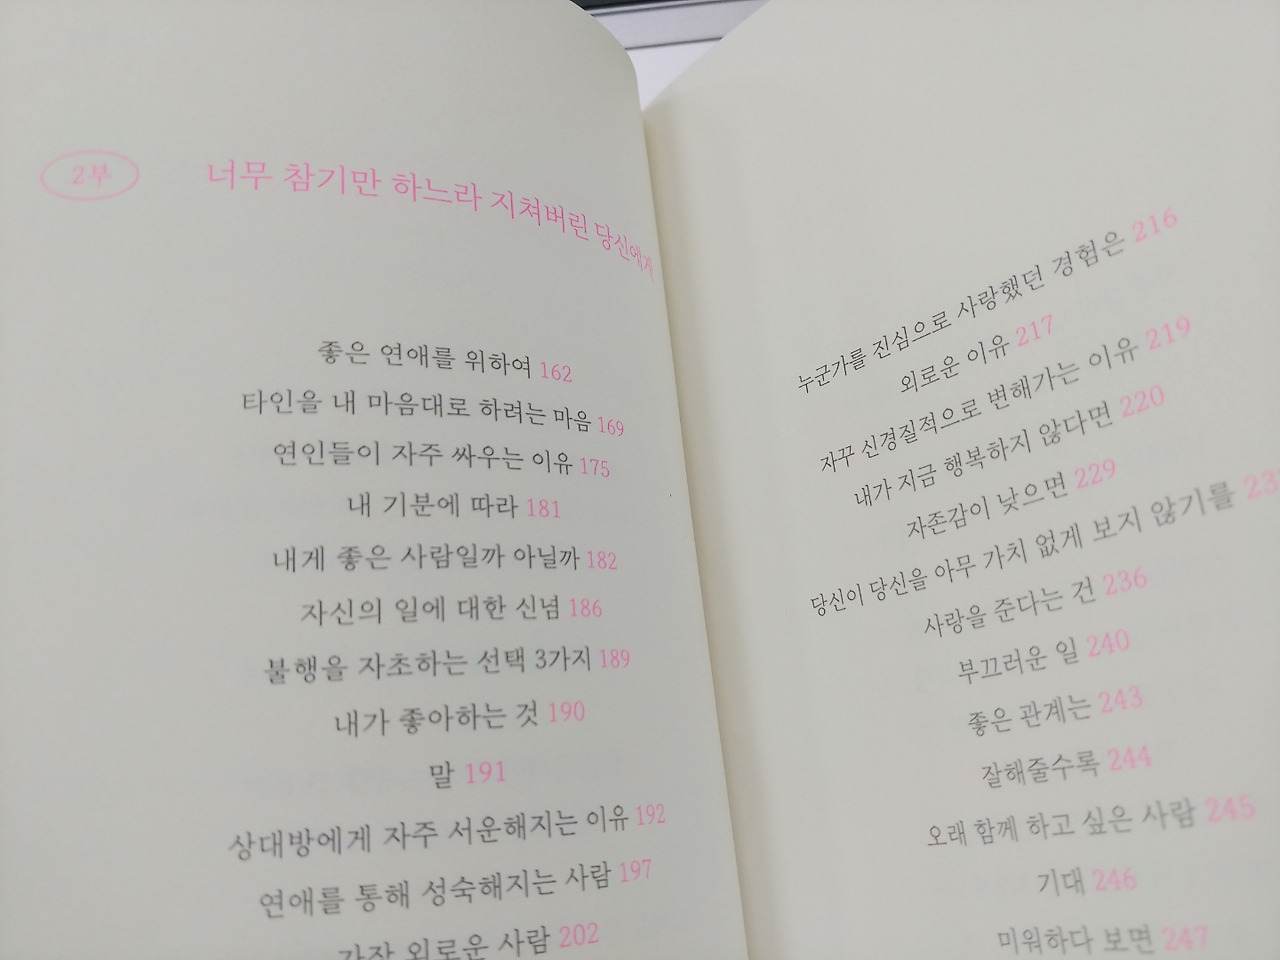 2부
너무 참기만 하느라 지쳐버린 당신에게
좋은 연애를 위하여 162
타인을 내 마음대로 하려는 마음 169
연인들이 자주 싸우는 이유 175
내 기분에 따라 181
내게 좋은 사람일까 아닐까 182
자신의 일에 대한 신념 186
불행을 자초하는 선택 3가지 189
내가 좋아하는 것 190
말 191
상대방에게 자주 서운해지는 이유 192
연애를 통해 성숙해지는 사람 197
가장 외로운 사람 202
누군가를 진심으로 사랑했던 경험은 216
외로운 이유 217
자꾸 신경질적으로 변해가는 이유 219
내가 지금 행복하지 않다면 220
자존감이 낮으면 229
당신이 당신을 아무 가치 없게 보지 않기를
사랑을 준다는 건 236
부끄러운 일 240
좋은 관계는 243
잘해줄수록 244
오래 함께 하고 싶은 사람 245
기대 246
미워하다 보면 247